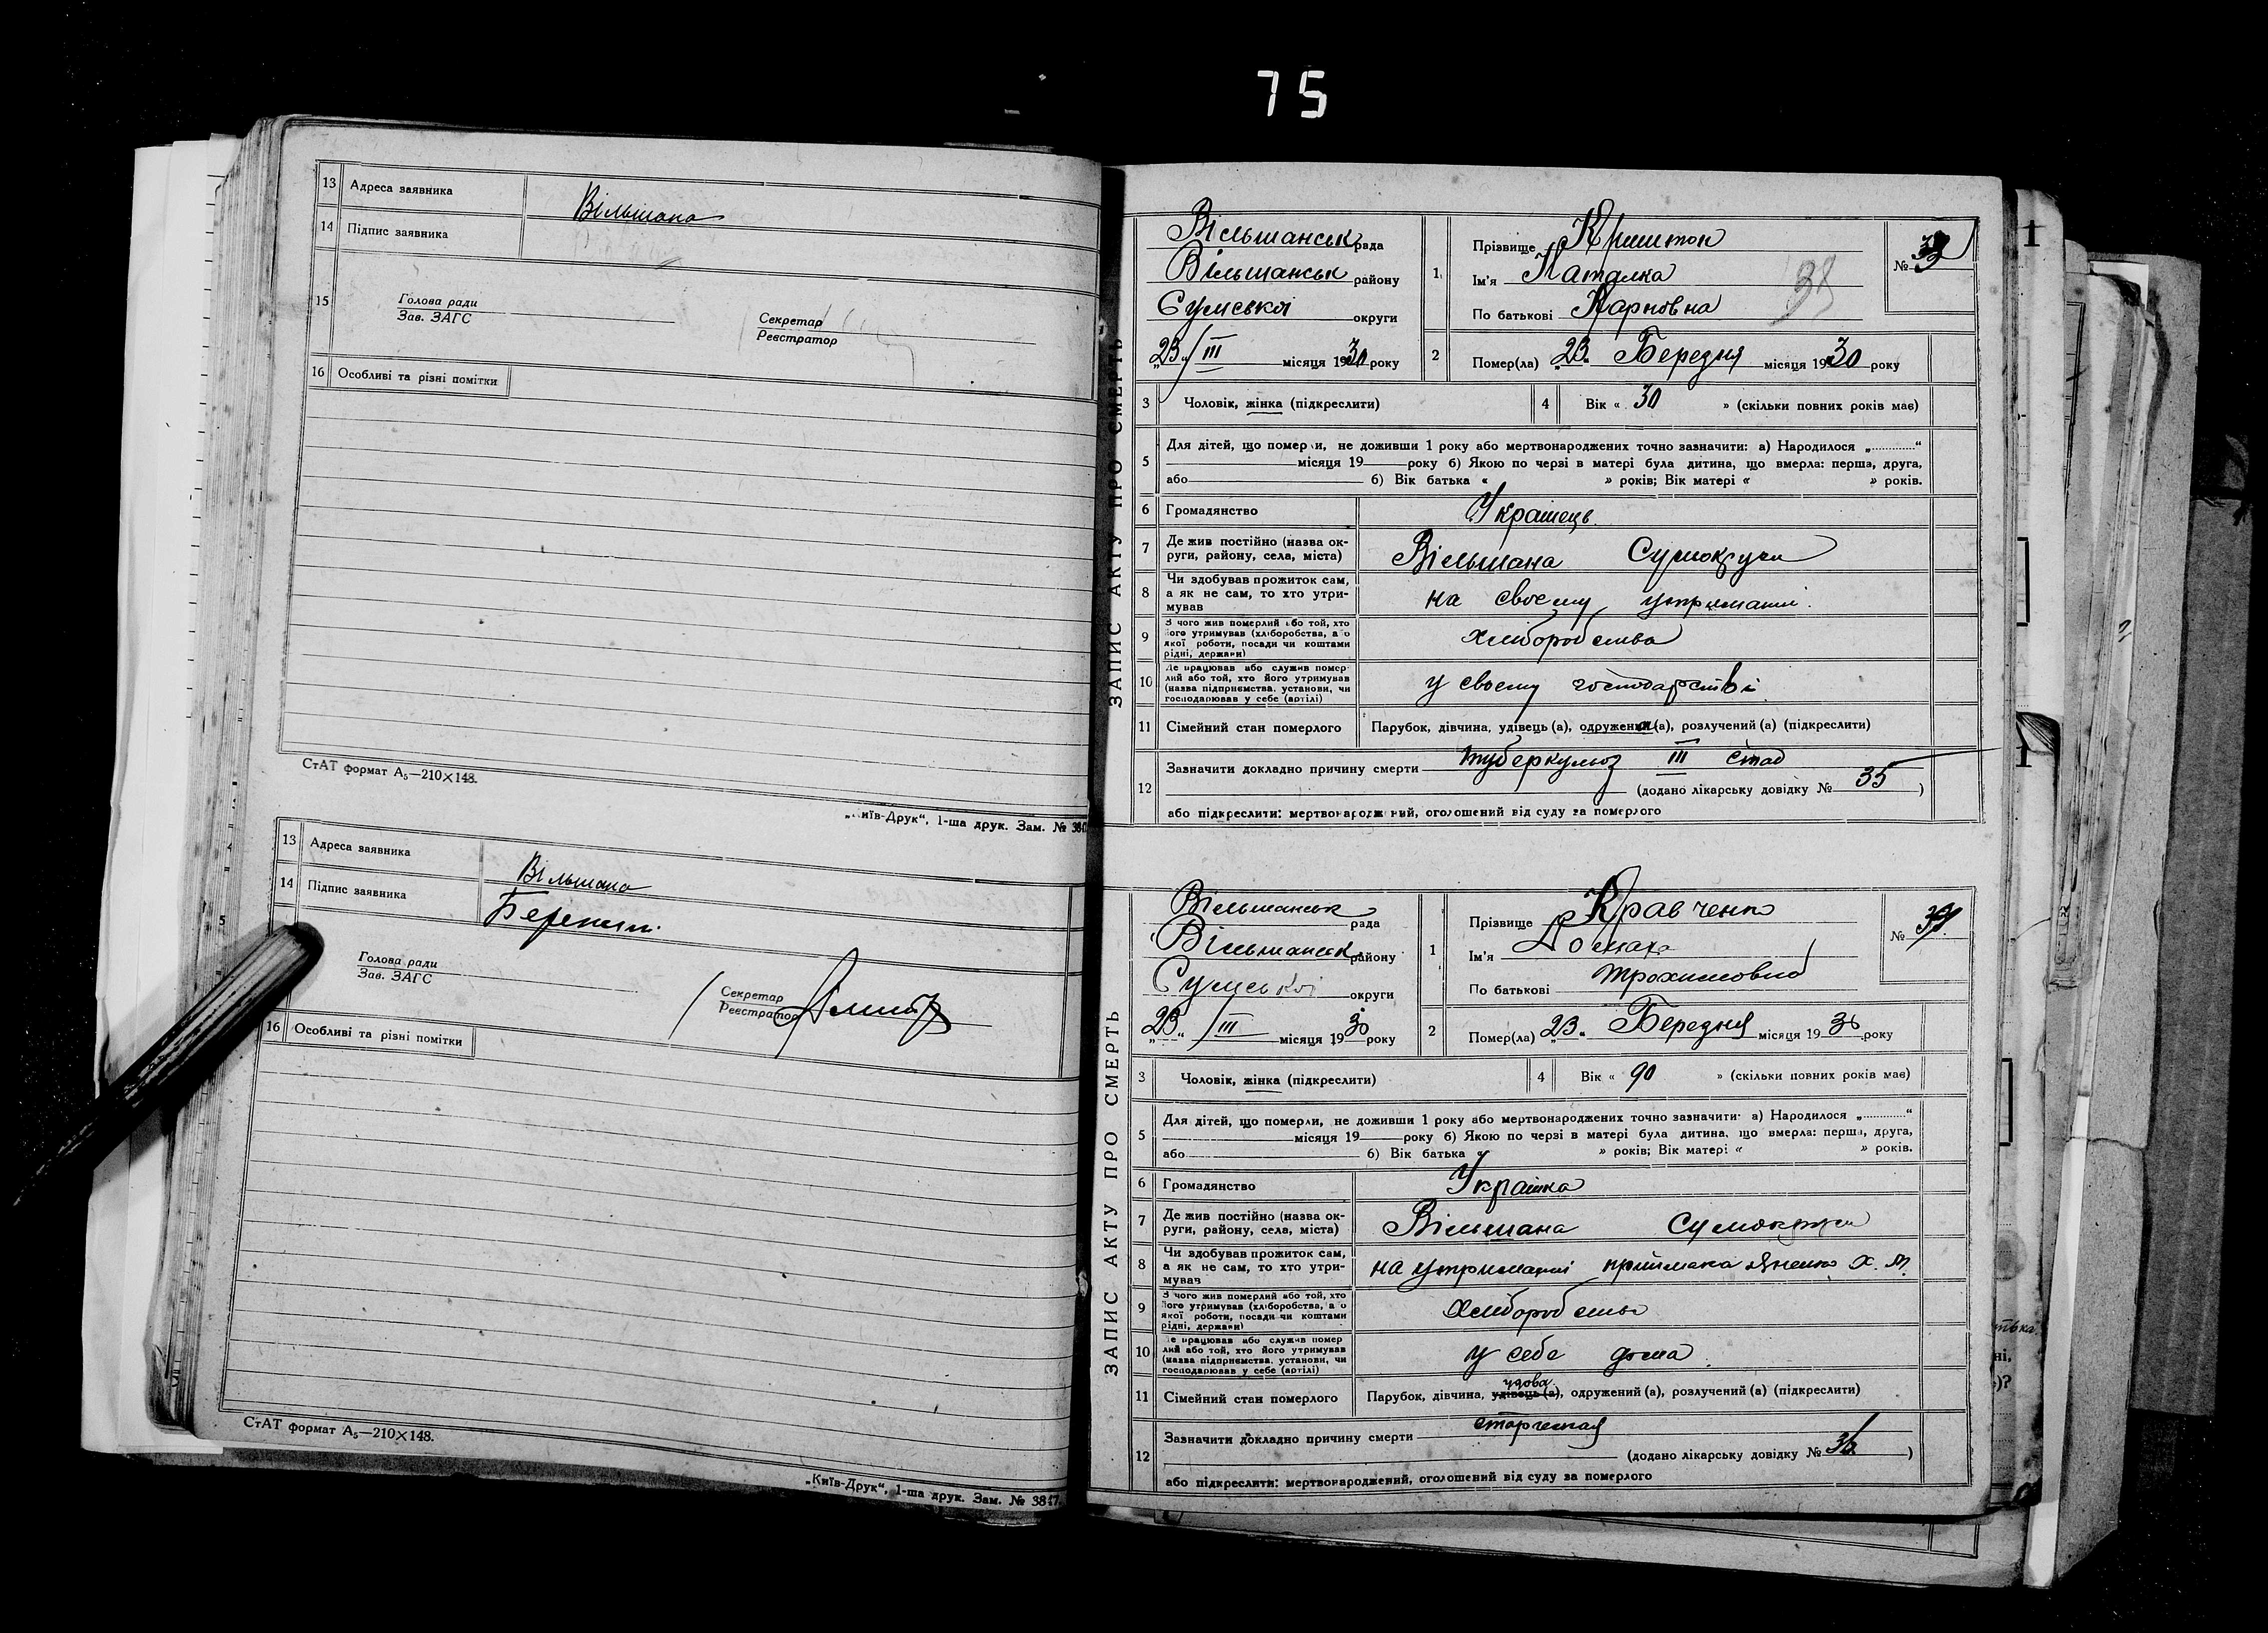 75
13 Адреса заявника Вільшана
14 Підпис заявника
15 Голова ради
Зав. ЗАГС
Секретар
Реєстратор
16 Особливі та різні помітки
СтАТ формат А₅—210×148.
„Київ-Друк“, 1-ша друк. Зам. № 38
13 Адреса заявника Вільшана
14 Підпис заявника
Голова ради
Зав. ЗАГС
Секретар
Реєстратор
16 Особливі та різні помітки
СтАТ формат А₅—210×148.
„Київ-Друк“, 1-ша друк. Зам. № 3847
ЗАПИС АКТУ ПРО СМЕРТЬ
Вільшанськ рада
Вільшанськ району
Сумської округи
„23“ III місяця 1930 року
1 Прізвище
Ім'я Наталка
По батькові Карповна
38
№
2 Помер(ла) „23“ Березня місяця 1930 року
3 Чоловік, жінка (підкреслити)
4 Вік « 30 » (скільки повних років має)
5 Для дітей, що померли, не доживши 1 року або мертвонароджених точно зазначити: а) Народилося „............“
місяця 19 року б) Якою по черзі в матері була дитина, що вмерла: перша, друга,
або б) Вік батька « » років; Вік матері « » років.
6 Громадянство Українець
7 Де жив постійно (назва ок-
руги, району, села, міста) Вільшана Сумокруги
8 Чи здобував прожиток сам,
а як не сам, то хто утри-
мував на своєму утриманні.
9 З чого жив померлий або той, хто
його утримував (хліборобства, або
якої роботи, посади чи коштами
рідні, держави) хліборобства
10 Де працював або служив помер-
лий або той, хто його утримував
(назва підприємства, установи, чи
господарював у себе (артілі) у своєму господарстві
11 Сімейний стан померлого Парубок, дівчина, удівець (а), одружений (а), розлучений (а) (підкреслити)
12 Зазначити докладно причину смерти туберкульоз III стад
(додано лікарську довідку № 35 )
або підкреслити: мертвонароджений, оголошений від суду за померлого
ЗАПИС АКТУ ПРО СМЕРТЬ
Вільшанськ рада
Вільшанськ району
Сумської округи
„23“ III місяця 1930 року
1 Прізвище Кравченко
Ім'я Домаха
По батькові Трохимовна
№ 39
2 Помер(ла) „23“ Березня місяця 1930 року
3 Чоловік, жінка (підкреслити)
4 Вік « 90 » (скільки повних років має)
5 Для дітей, що померли, не доживши 1 року або мертвонароджених точно зазначити: а) Народилося „............“
місяця 19 року б) Якою по черзі в матері була дитина, що вмерла: перша, друга,
або б) Вік батька « » років; Вік матері « » років.
6 Громадянство Українка
7 Де жив постійно (назва ок-
руги, району, села, міста) Вільшана Сумокруги
8 Чи здобував прожиток сам,
а як не сам, то хто утри-
мував на утриманні приймака
9 З чого жив померлий або той, хто
його утримував (хліборобства, або
якої роботи, посади чи коштами
рідні, держави) хліборобства
10 Де працював або служив помер
лий або той, хто його утримував
(назва підприємства, установи, чи
господарював у себе (артілі) у себе дома
удова
11 Сімейний стан померлого Парубок, дівчина, удівець (а), одружений (а), розлучений (а) (підкреслити)
12 Зазначити докладно причину смерти
(додано лікарську довідку № 36 )
або підкреслити: мертвонароджений, оголошений від суду за померлого